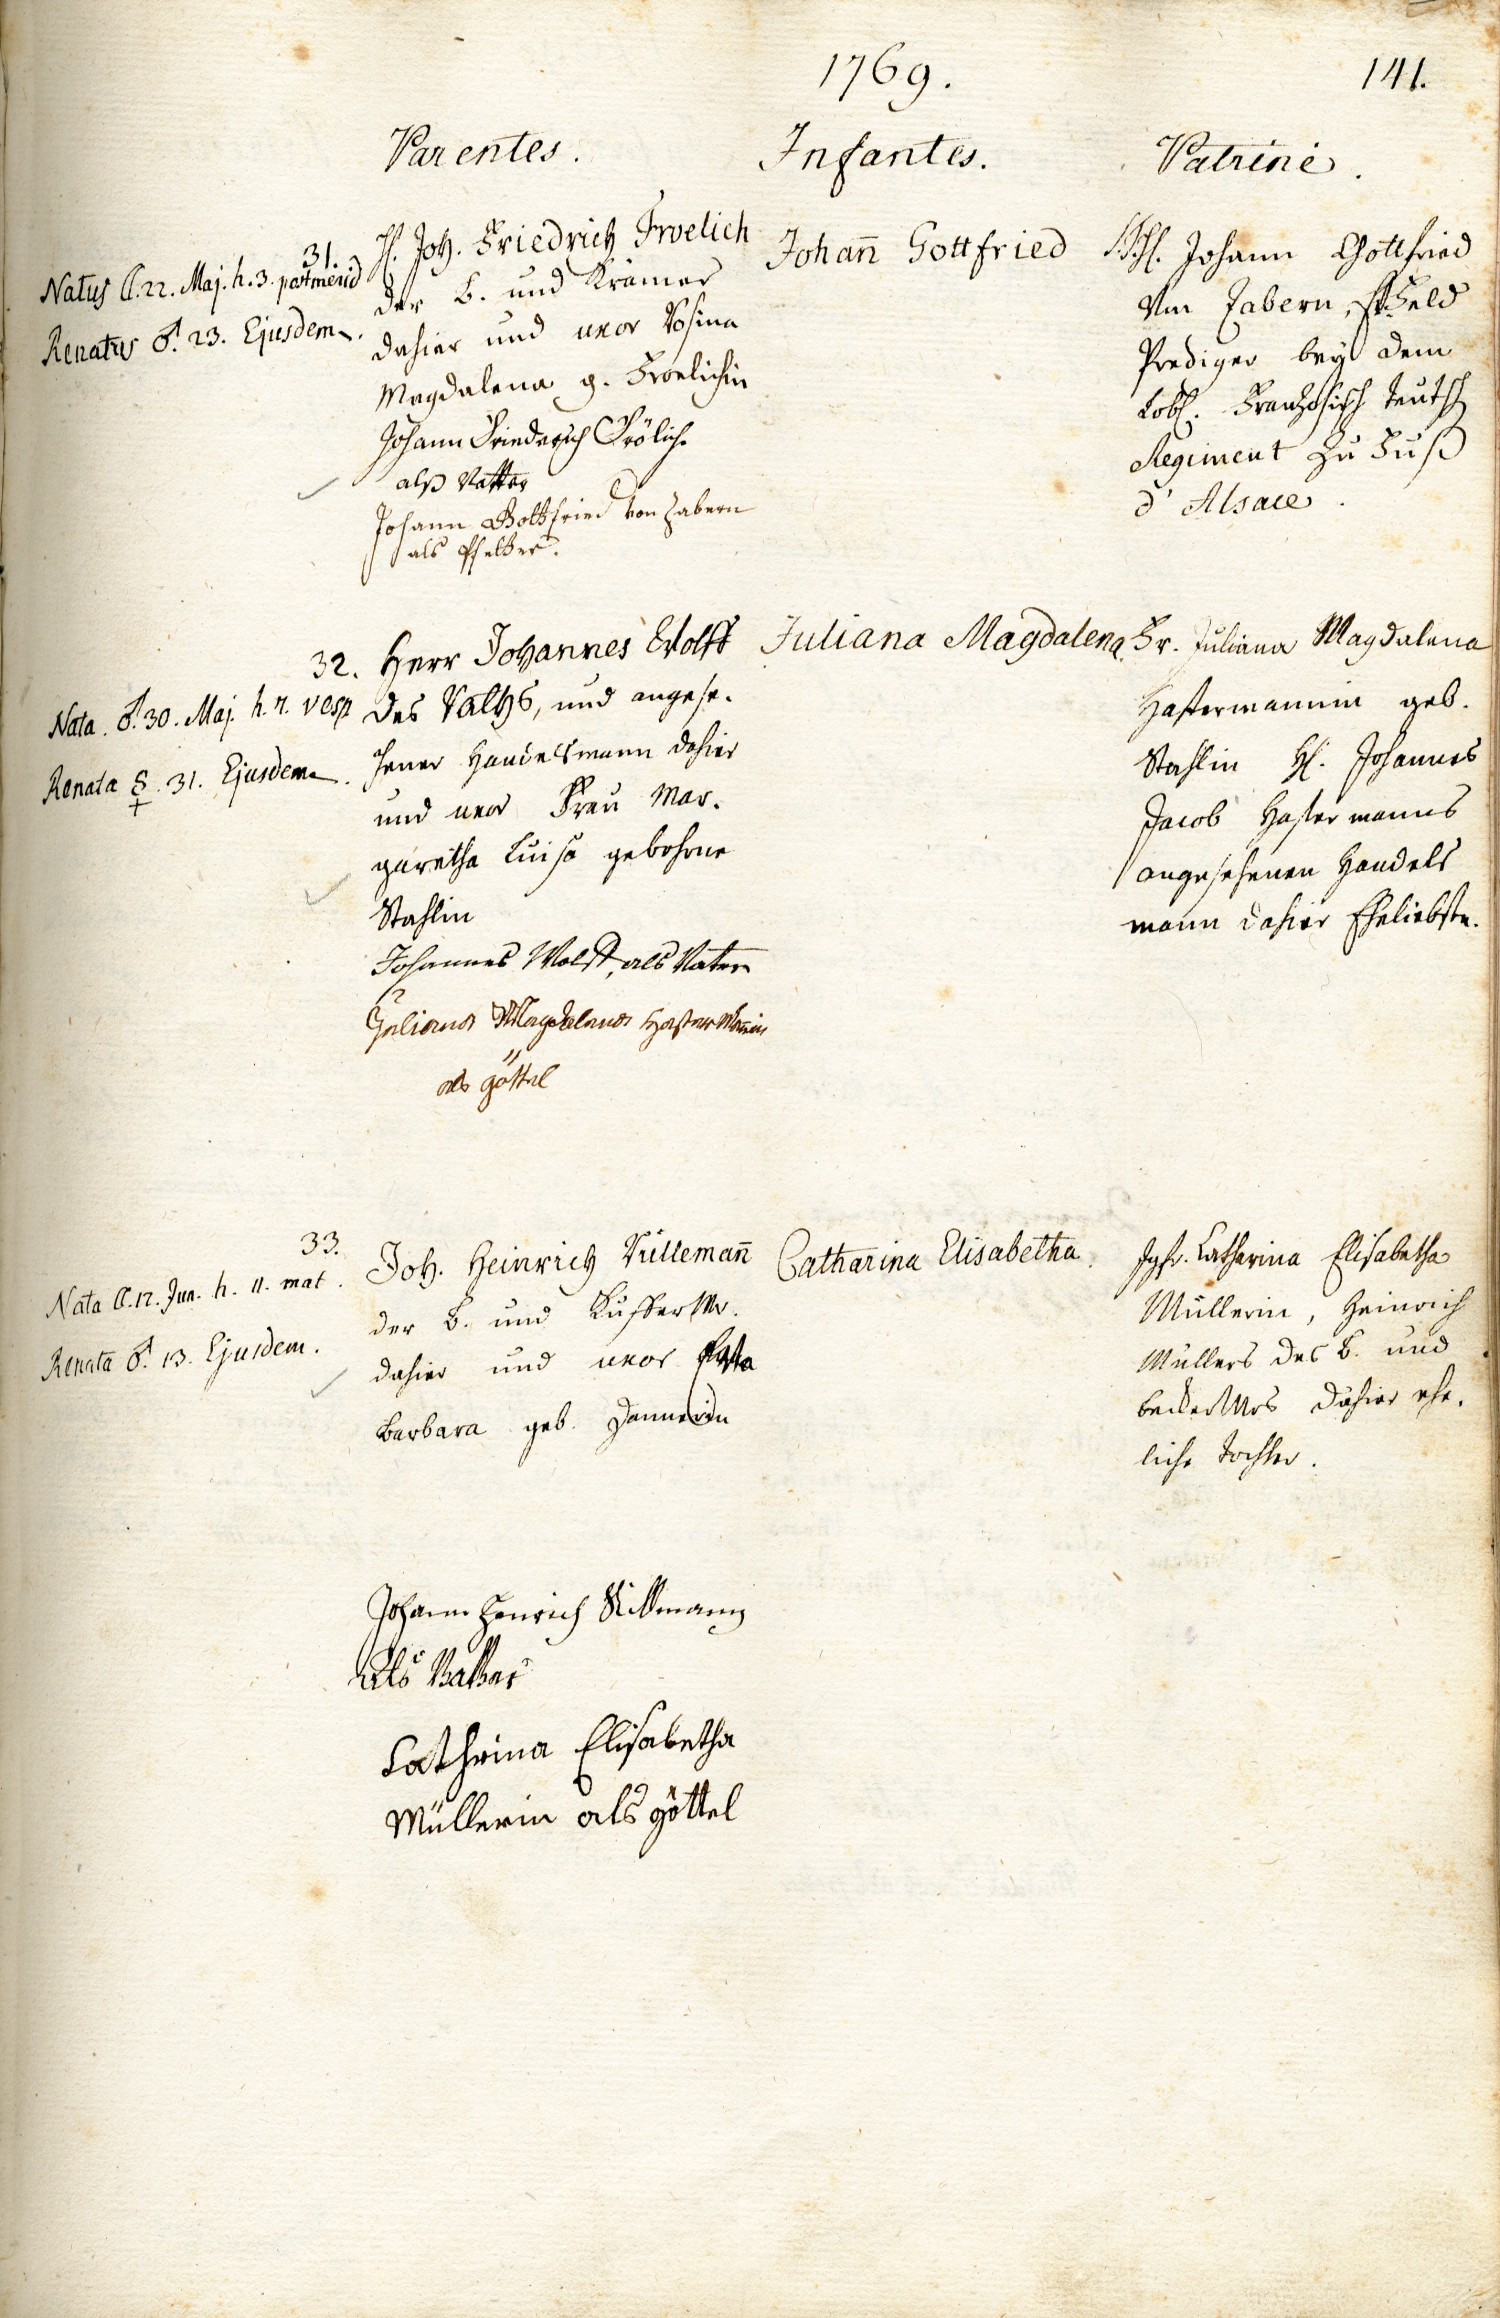 1769.
141.
Parentes.
Infantes.
Patrini.
31.
Natus ☾. 22. Maj. h. 3. postmerid
Renatus ♂. 23. Ejusdem.
H. Joh. Friedrich Froelich
der B. und Krämer
dahier und uxor Rosina
Magdalena g. Froelichin
Johann Friederich Frölich
alß Vatter
Johann Gottfried von Zabern
als Pfetter.
Johann̄ Gottfried
H. Johann Gottfried
von Zabern, Feld
Prediger bey dem
Lobl. Französisch Teutsch
Regiment zu Fuß
d'Alsace.
32.
Nata. ♂. 30. Maj. h. 7. vesp
Renata ☿. 31. Ejusdem.
Herr Johannes Wolff
des Raths, und angese-
hener Handelsmann dahier
und uxor Frau Mar-
garetha Luisa gebohrne
Stahlin
Johannes Wolff, als Vater
Juliana Magdalena Hastermännin
als göttel
Juliana Magdalena.
Fr. Juliana Magdalena
Hastermannin geb.
Stahlin H. Johannes
Jacob Hastermanns
angesehenen Handels
mann dahier Eheliebste.
33.
Nata ☾. 12. Jun. h. 11. mat.
Renata ♂. 13. Ejusdem.
Joh. Heinrich Küllemann̄
der B. und Küffer Mr.
dahier und uxor
Barbara geb. Dannerin
Johann Henrich Killmann
als Vatter
Cathrina Elisabetha
Müllerin als göttel
Catharina Elisabetha.
Jgfr. Catharina Elisabetha
Müllerin, Heinrich
Müllers des B. und
becker Mrs dahier ehe-
liche Tochter.